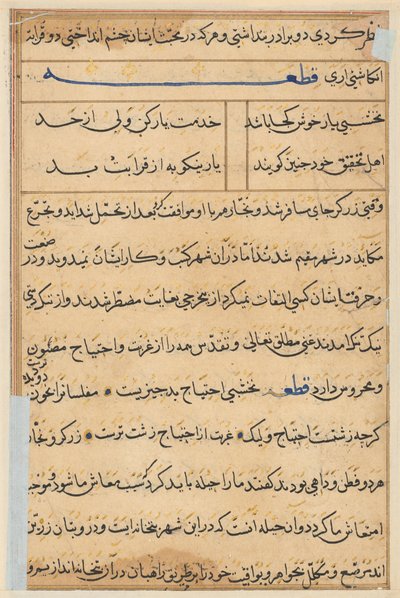 نظر کردی دو برادر پنداشتی و هرکه در محبّت ایشان چشم انداختی دو قرابه
انکاشتی اری قطعه
نخشبی یار خوش کجا باشد خدمت یار کن ولی از حد
اهل تحقیق خود چنین گویند یار نیکو به از قرابت بد
وقتی زرگر جای مسافر شد و نجّار هم با او موافقت کرد بعد از تحمّل شداید و تجرّع
مکابد در شهری مقیم شدند امّا دران شهر کسب و کار ایشان نمیدوید و در صنعت
و حرفت ایشان کسی التفات نمیکرد از بیخرجی بغایت مضطر شدند و از نیک
بتنک امدند غنی مطلق تعالی و تقدّس همه را از غربت و احتیاج مصئون
و محروس دارد قطعه نخشبی احتیاج بد چیزیست مفلسا
گرچه زشتست احتیاج ولیک غربت از احتیاج زشت ترست زرگر و نجّار
هر دو فطن و داهی بودند گفتند ما را حیله باید کرد که سبب معاش ما شود و موجب
انتعاش ما کردد وان حیله انست که در این شهر بتخانه ایست و درو بتان زرّین
اند مرصّع و مکلّل بجواهر و یواقیت خود را بر طریق راهبان در آن بتخانه اندازیم و